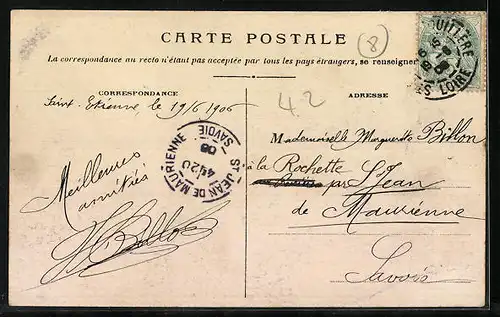 CARTE POSTALE
8
La correspondance au recto n'étant pas acceptée par tous les pays étrangers, se renseigner
CORRESPONDANCE
ADRESSE
Saint-Etienne le 19/6 1906
42
Meilleures
amitiés
Billon
ST JEAN DE MAURIENNE
SAVOIE
06
LOIRE
Mademoiselle Marguerite Billon
à la Rochette
par St Jean
de Maurienne
Savoie